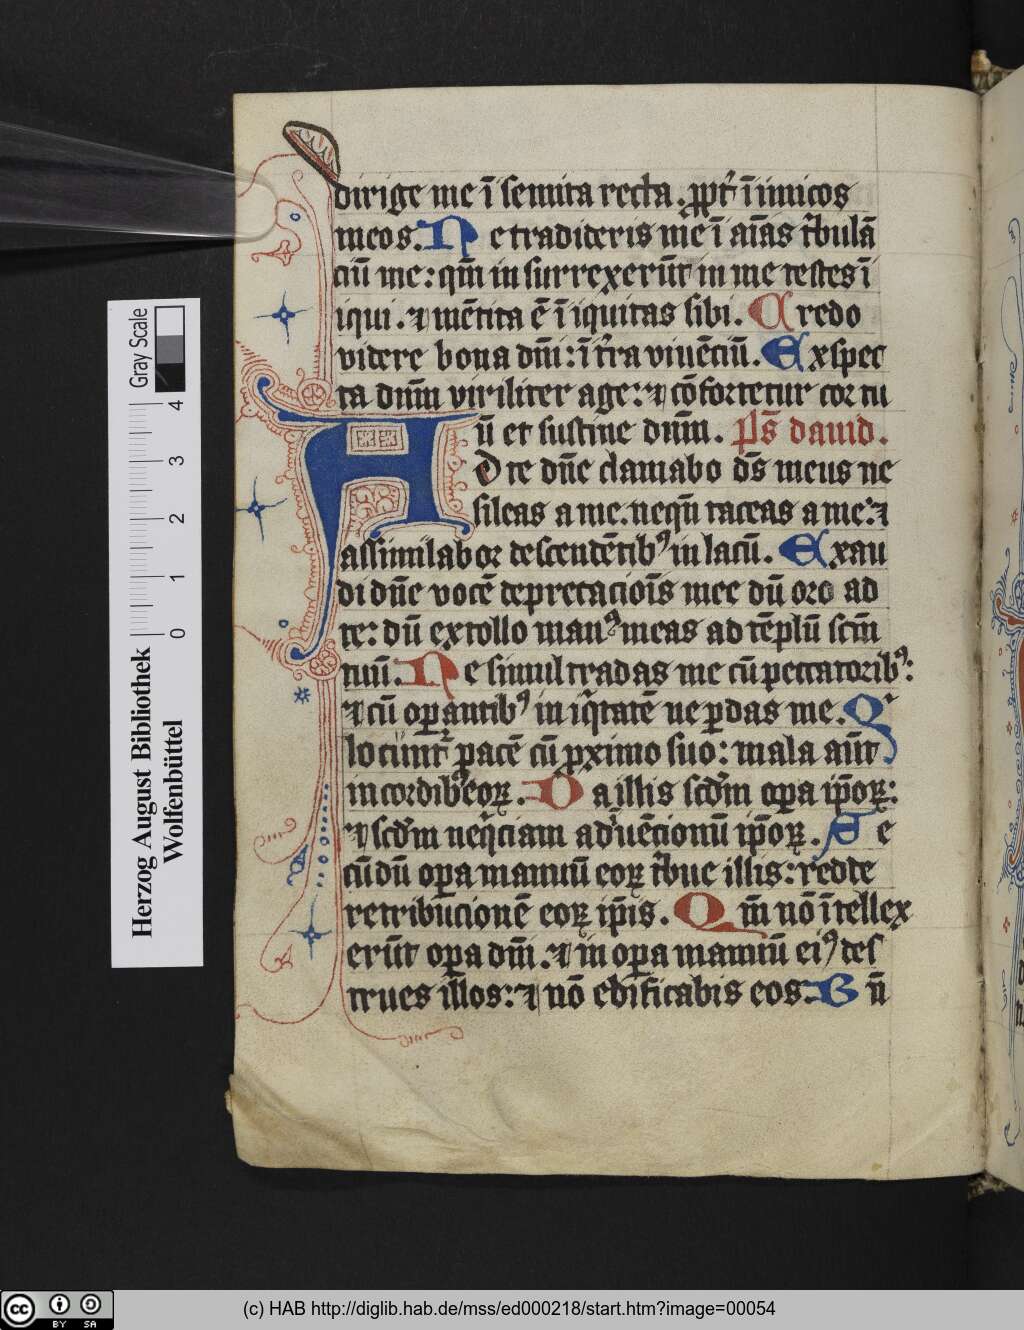 dirige me ī semita recta. ꝓpt̄ īimicos
meos. Ne tradideris me ī aīas t̄bulā
ciū me: qm̄ in surrexerūt in me testes ī
iqui. ⁊ mētita ē īiquitas sibi. Credo
videre bona dn̄i: ī t̄ra viuēciū. Exspec
ta dnm̄ viriliter age: ⁊ cōfortetur cor tu
ū et sustine dnm̄. Ps̄ dauid.
Ad te dn̄e clamabo ds̄ meus ne
sileas a me. neqn̄ taceas a me: ⁊
assimilabor descendētibꝰ in lacū. Exau
di dn̄e vocē deprecacioīs mee dū oro ad
te: dū extollo manꝰ meas ad tēplū scm̄
tuū. Ne simul tradas me cū peccatoribꝰ:
⁊ cū oꝑantibꝰ in iq̄tatē ne ꝑdas me. Qͥ
locūnt̄ pacē cū ꝓximo suo: mala aūt
in cordibꝰ eoꝝ. Da illis scd̄m oꝑa ip̄oꝝ:
⁊ scd̄m neq̄ciam adīuēcionū ip̄oꝝ. S e
cūdū oꝑa manuū eoꝝ t̄bue illis: redde
retribucionē eoꝝ ip̄is. Qm̄ nō ītellex
erūt oꝑa dn̄i. ⁊ in oꝑa manuū eiꝰ des
trues illos: ⁊ nō edificabis eos. Bn̄
Herzog August Bibliothek
Wolfenbüttel
0 1 2 3 4
Gray Scale
cc BY SA
(c) HAB http://diglib.hab.de/mss/ed000218/start.htm?image=00054